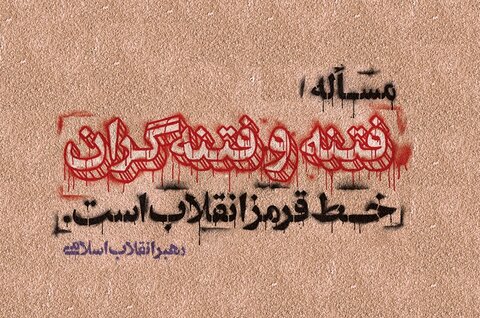 مسأله /
فتنه و فتنه‌گران
خط قرمز انقلاب است.
رهبر انقلاب اسلامی